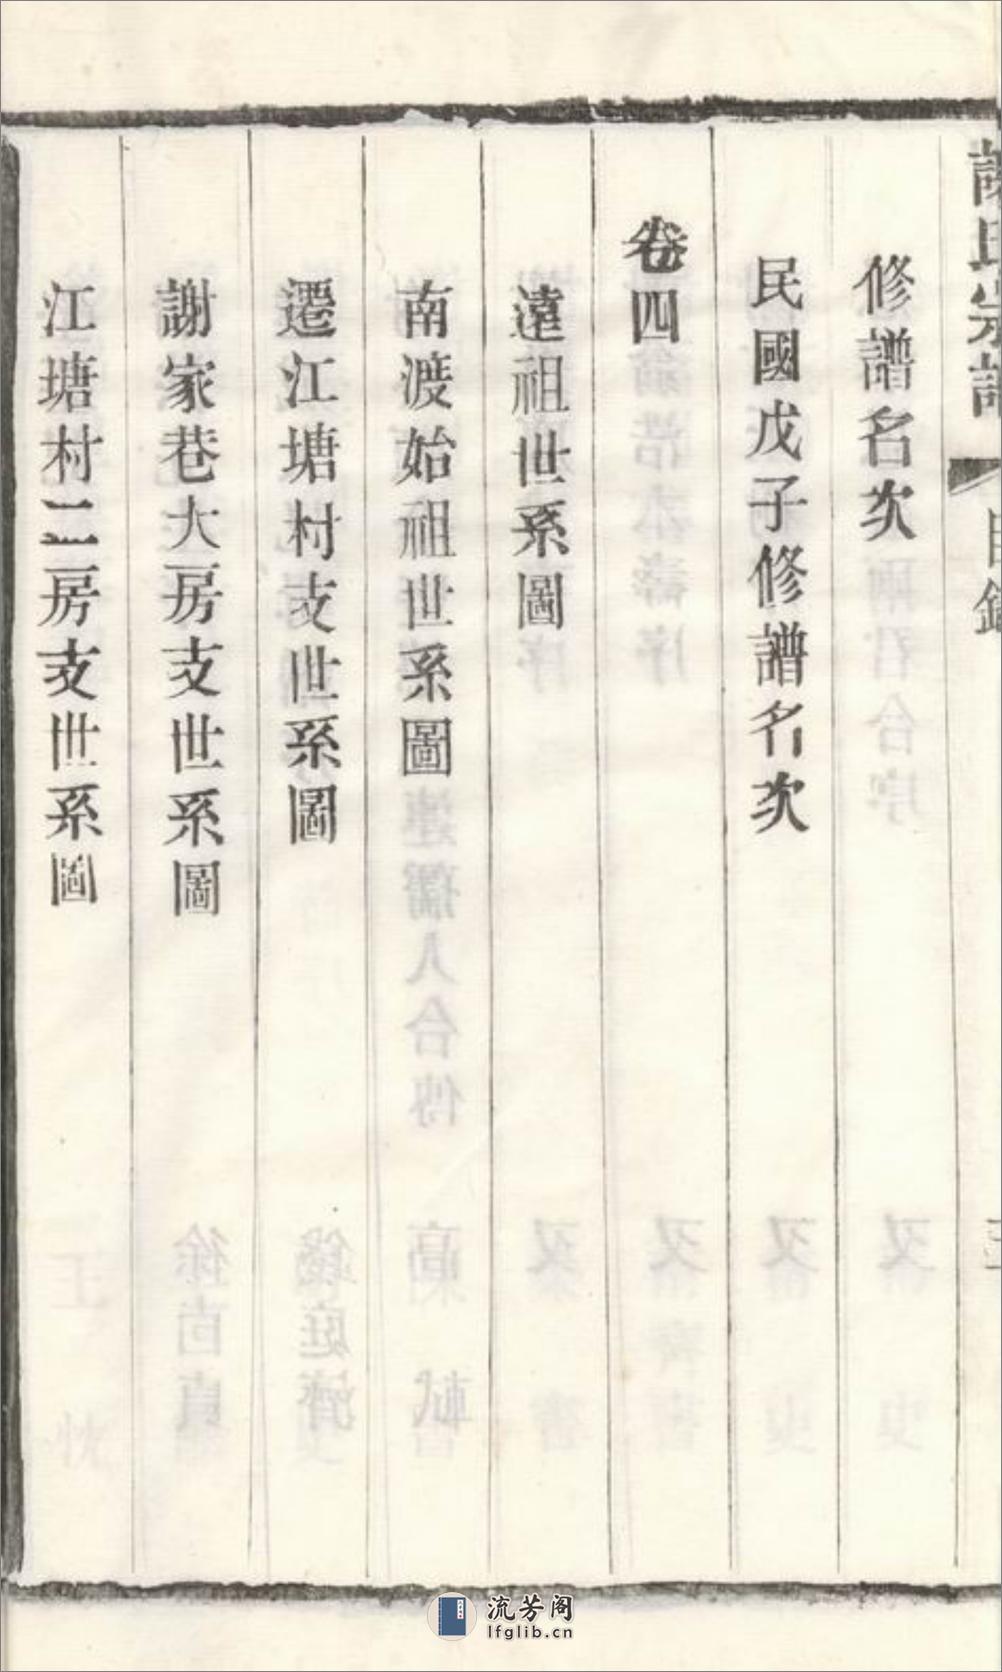 謝氏宗譜 目錄
修譜名次
民國戊子修譜名次
卷四
遠祖世系圖
南渡始祖世系圖
遷江塘村支世系圖
謝家巷大房支世系圖
江塘村二房支世系圖
流芳阁
lfglib.cn